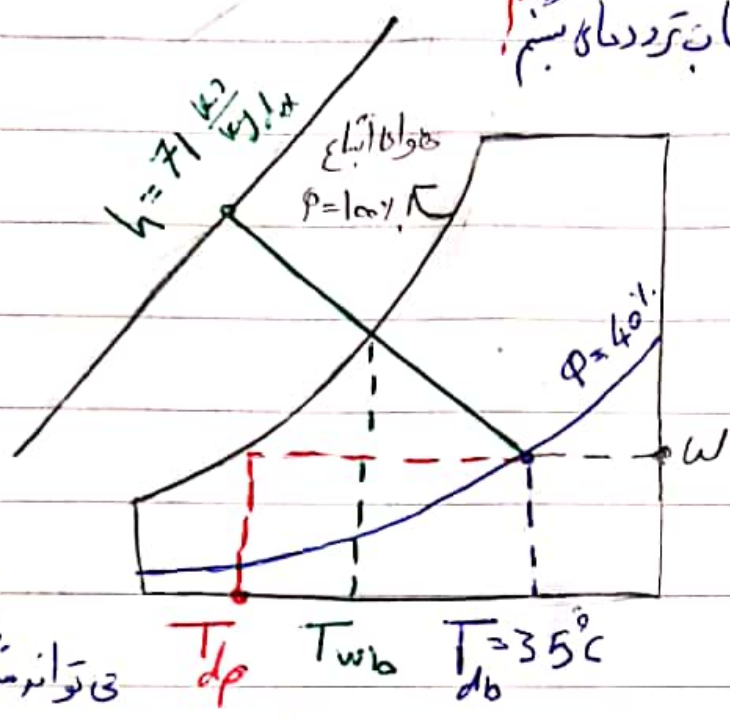 تردد های
h = 71 kJ/kg d.a
هوای اشباع
φ = 100%
φ = 40%
ω
Tdp Twb Tdb = 35°C
می تواند